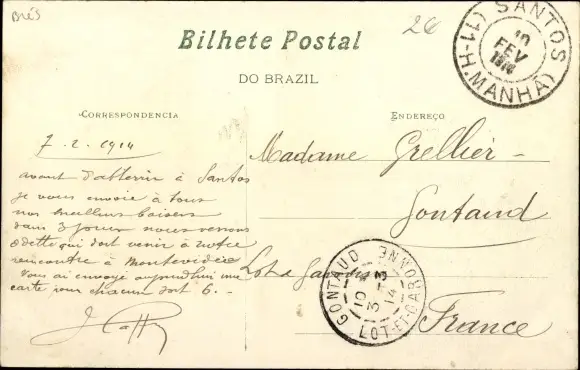 Brés
26
Bilhete Postal
DO BRAZIL
SANTOS
10
FEV
1914
(11-H.MANHÃ)
CORRESPONDENCIA
ENDEREÇO
7-2-1914
avant d'atterrir à Santos
je vous envoie à tous
nos meilleurs baisers
dans 3 jours nous verrons
Odette qui doit venir à notre
rencontre à Montevideo
Vous ai envoyé aujourdhui une
carte pour chacun soit 6. -
Madame Grellier -
Gontaud
Lot & Garonne
France
GONTAUD
10
3-3
14
LOT-ET-GARONNE